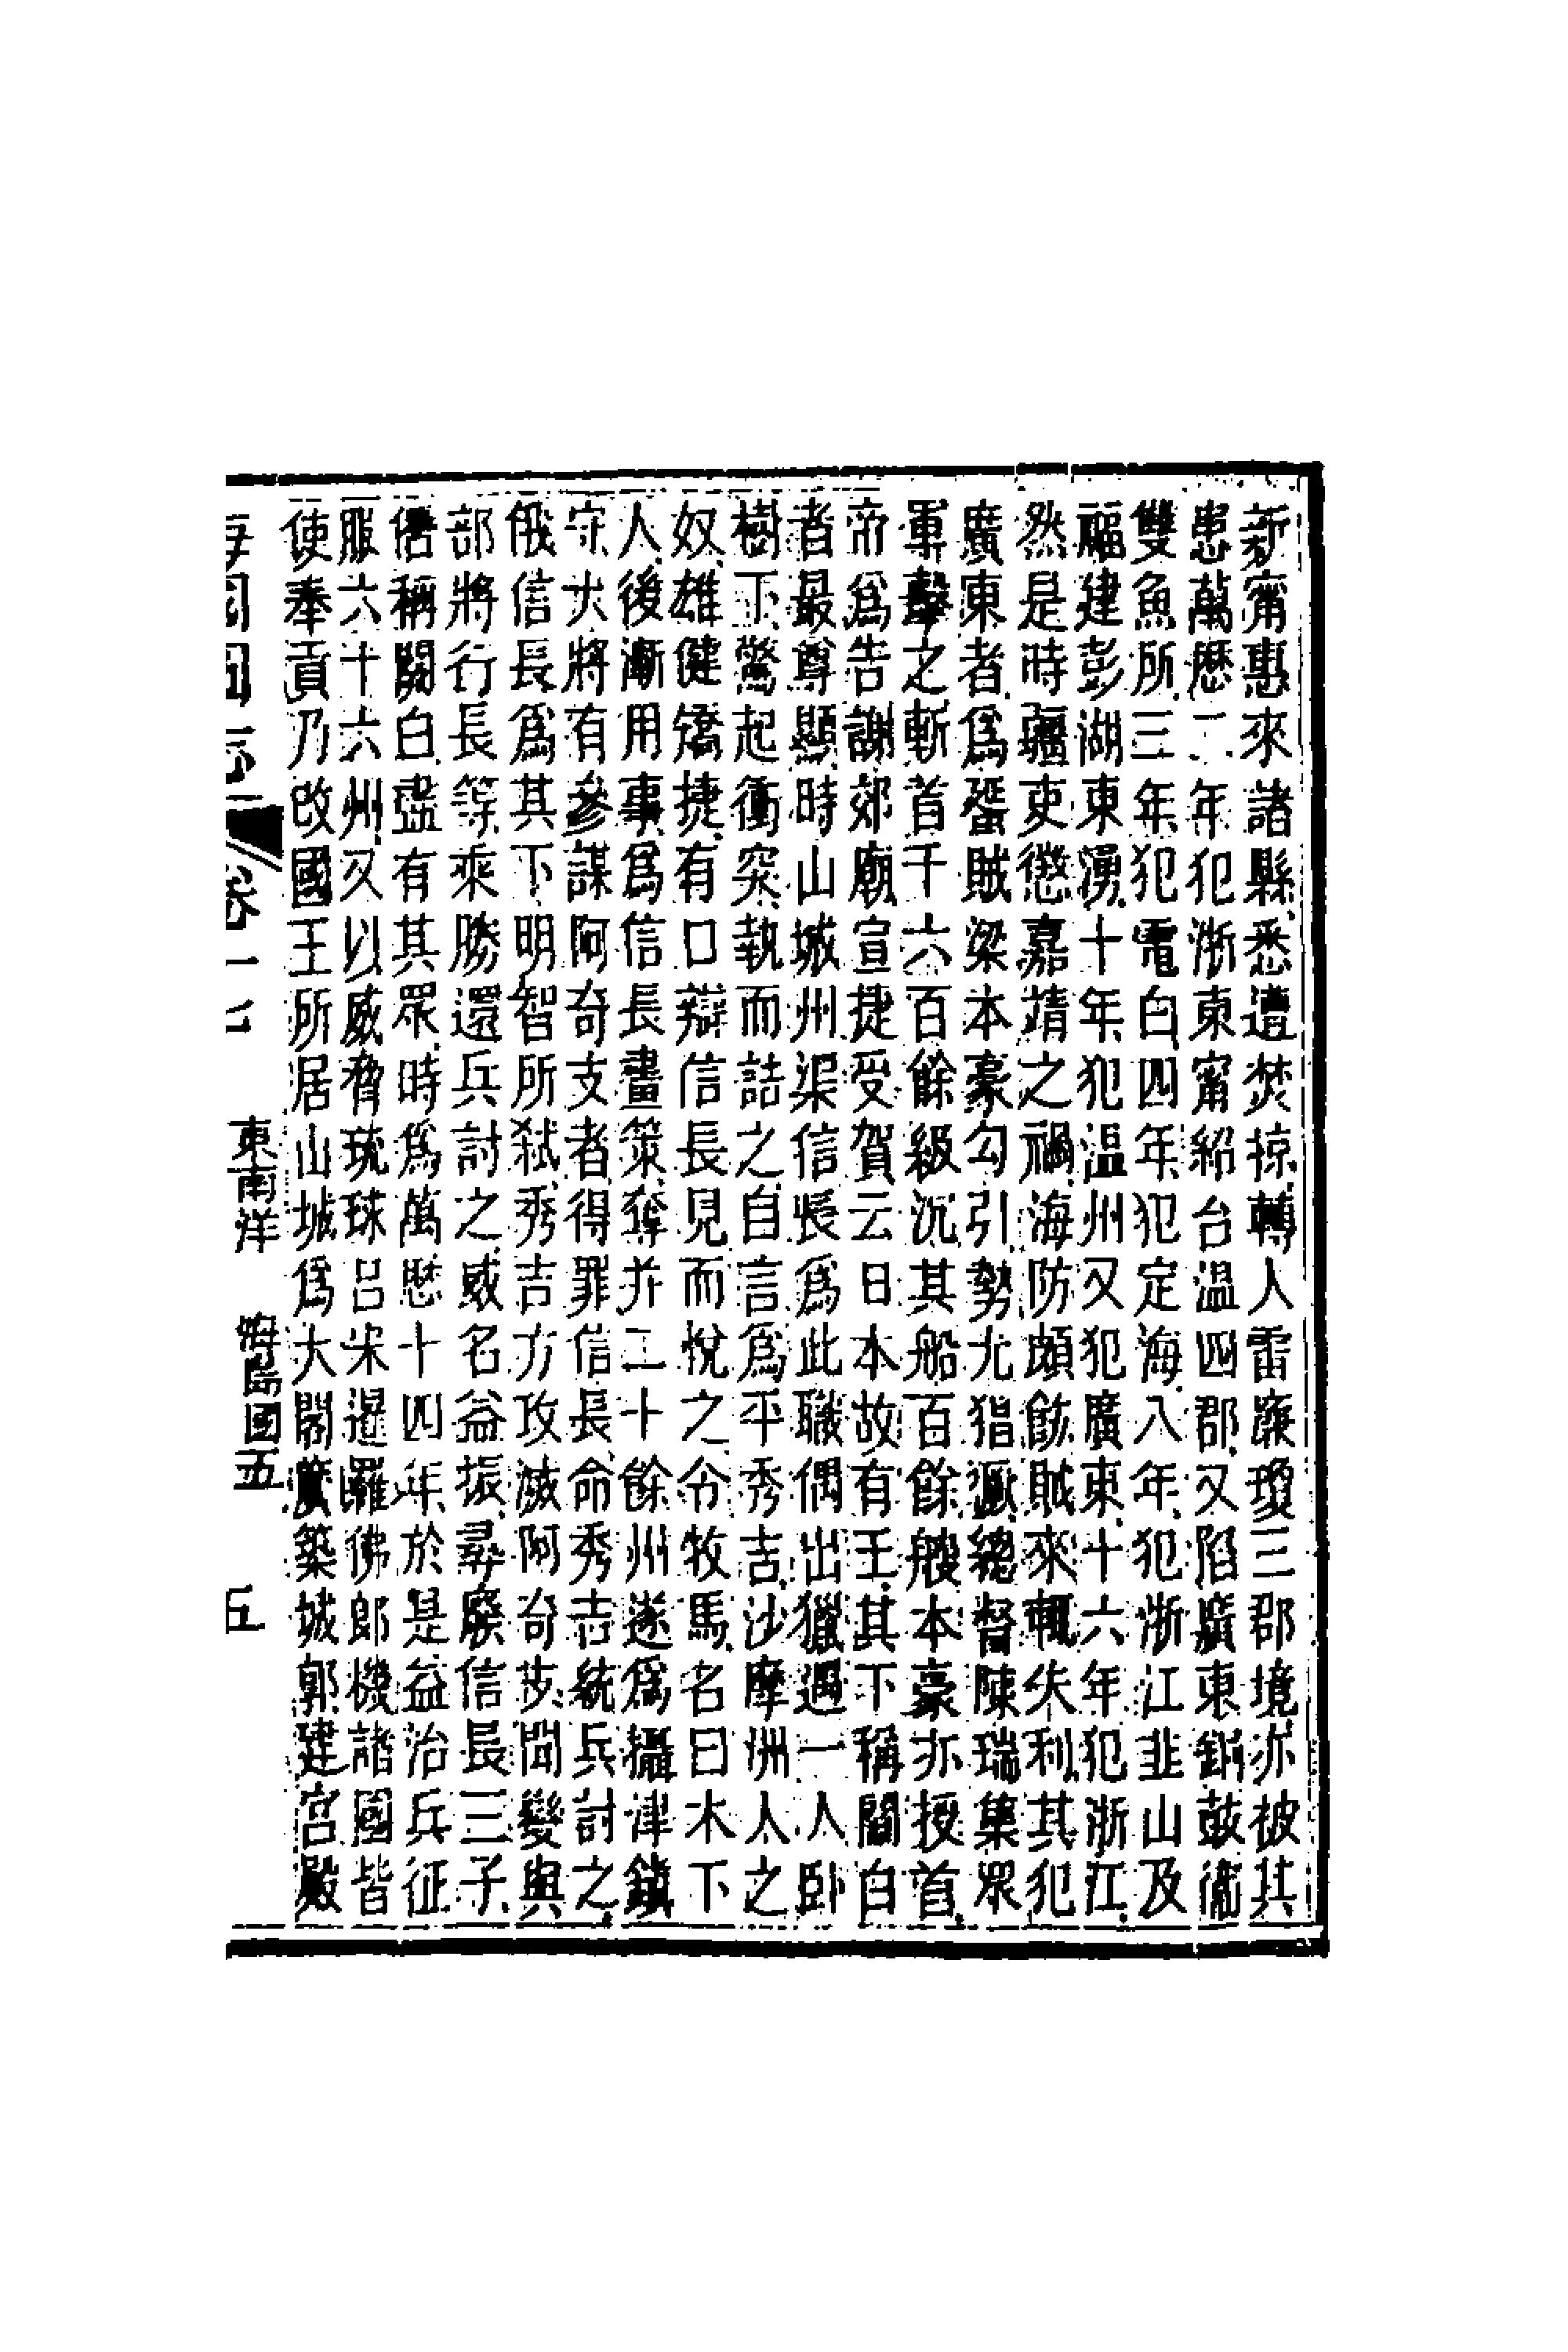 新甯惠來諸縣悉遭焚掠轉入雷廉瓊三郡境亦被其
患萬歷二年犯浙東甯紹台温四郡又陷廣東銅鼓衞
雙魚所三年犯電白四年犯定海八年犯浙江韭山及
福建彭湖東湧十年犯温州又犯廣東十六年犯浙江
然是時疆吏懲嘉靖之禍海防頗飭賊來輒失利其犯
廣東者爲蜑賊梁本豪勾引勢尤猖獗總督陳瑞集眾
軍擊之斬首千六百餘級沉其船百餘艘本豪亦授首
帝爲告謝郊廟宣捷受賀云日本故有王其下稱關白
者最尊顯時山城州渠信長爲此職偶出獵遇一人卧
樹下驚起衝突執而詰之自言爲平秀吉沙摩洲人之
奴雄健矯捷有口辯信長見而悅之令牧馬名曰木下
人後漸用事爲信長畫策奪并二十餘州遂爲攝津鎮
守大將有參謀阿奇支者得罪信長命秀吉統兵討之
俄信長爲其下明智所弑秀吉方攻滅阿奇支聞變與
部將行長等乘勝還兵討之威名益振尋廢信長三子
僭稱關白盡有其眾時爲萬歷十四年於是益治兵征
服六十六州又以威脅琉球呂宋暹羅佛郎機諸國皆
使奉貢乃改國王所居山城爲大閣廣築城郭建宮殿
海國圖志 卷十七 東南洋 海島國五 五